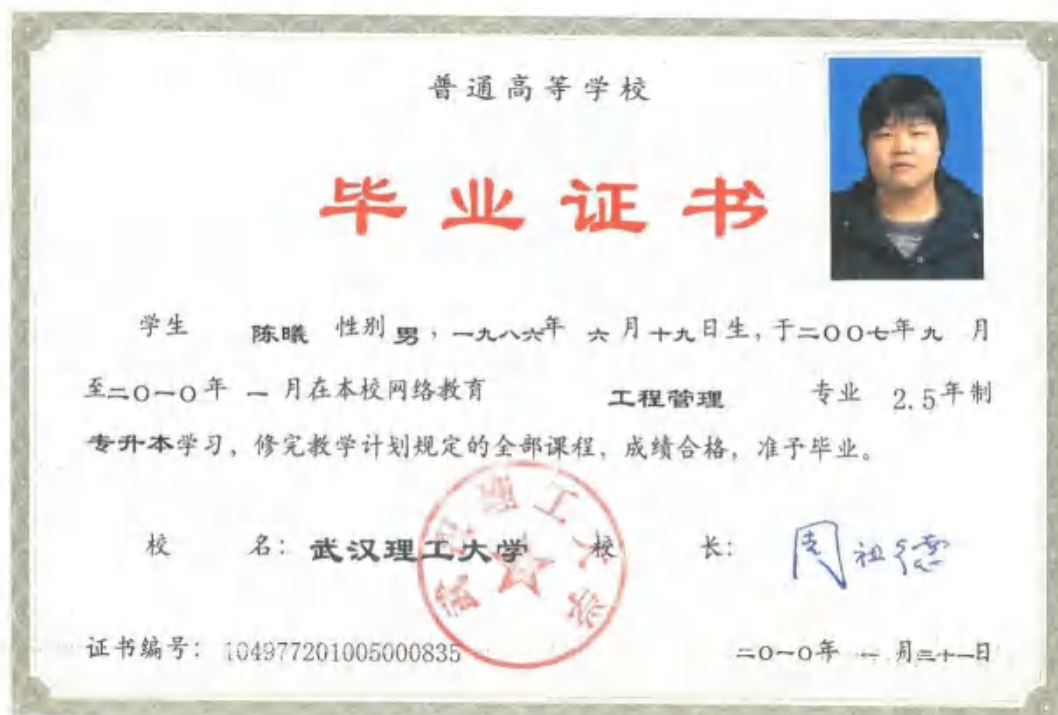 普通高等学校
毕业证书
学生 陈曦 性别 男，一九八六年 六月十九日生，于二〇〇七年九 月
至二〇一〇年 一 月在本校网络教育 工程管理 专业 2.5年制
专升本学习，修完教学计划规定的全部课程，成绩合格，准予毕业。
校 名：武汉理工大学 校 长：周祖德
武汉理工大学
证书编号：104977201005000835 二〇一〇年 一 月三十一日